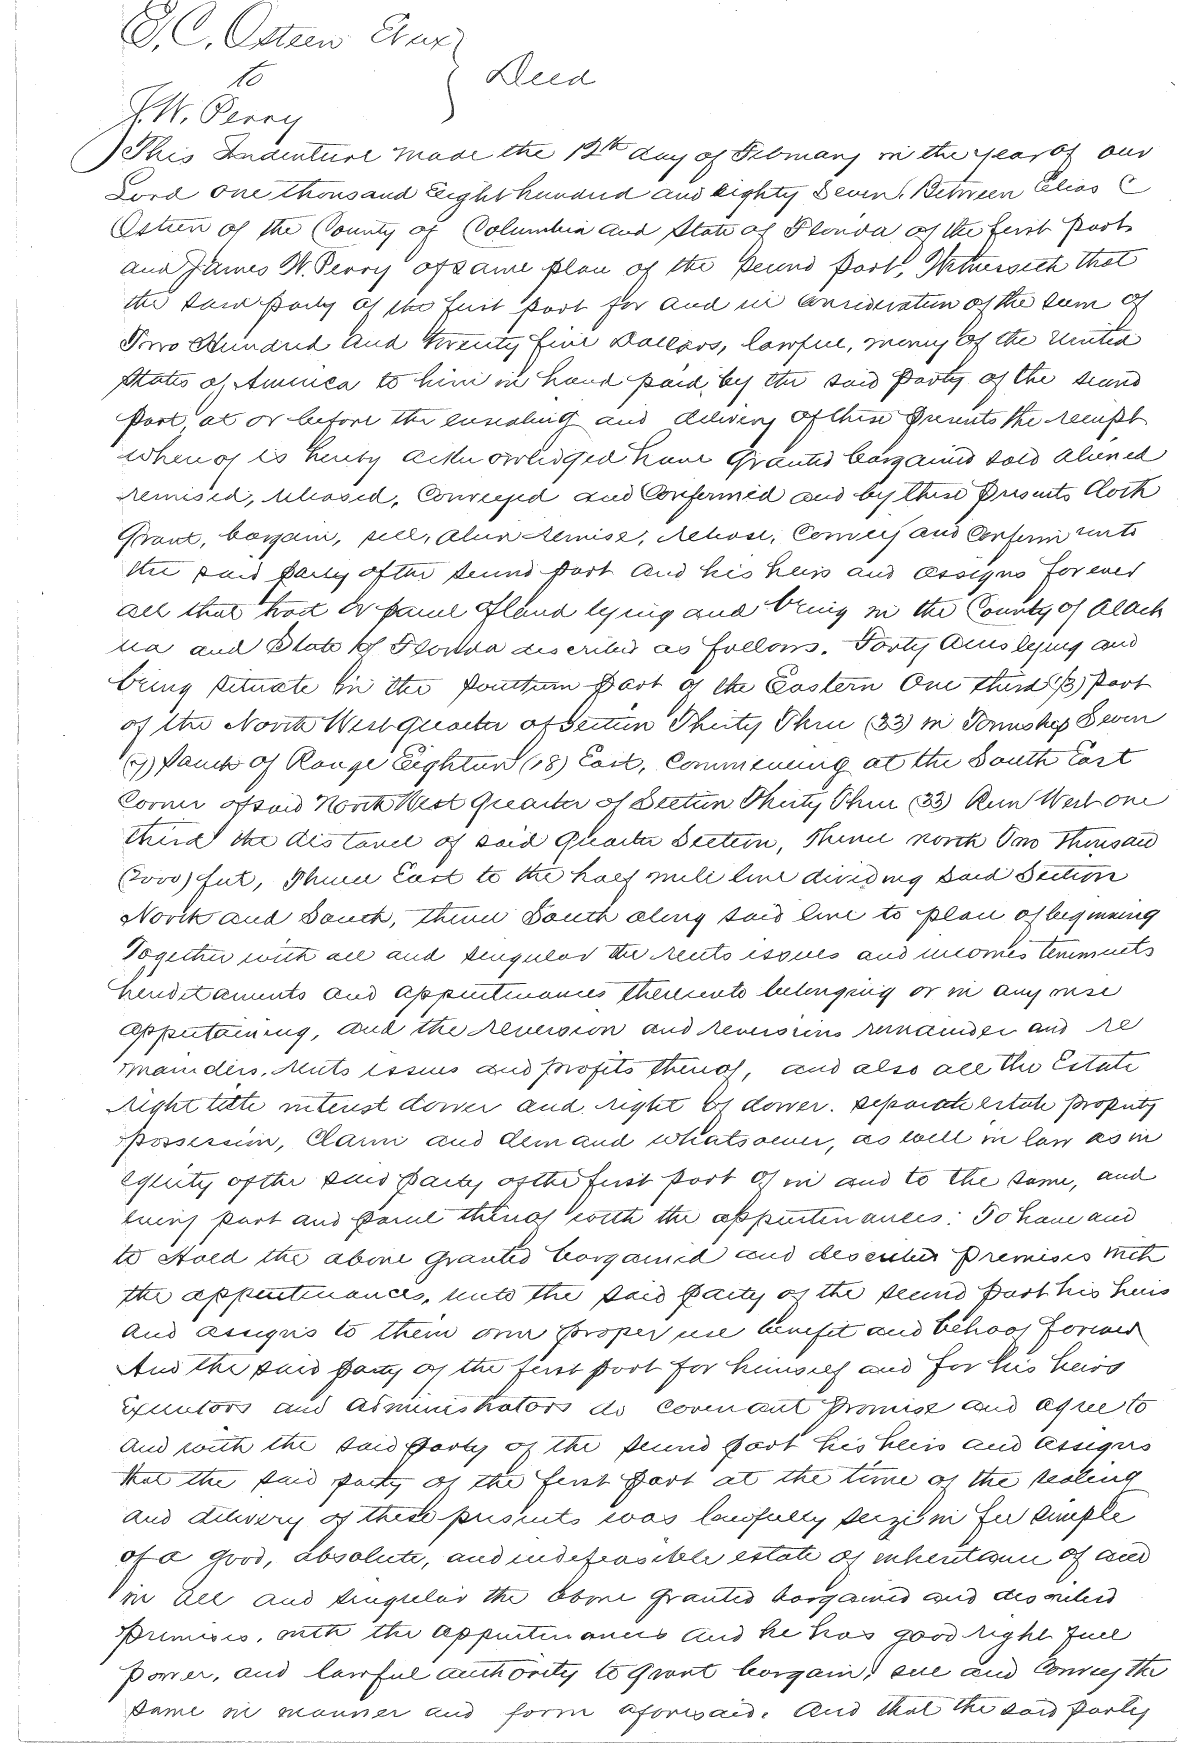 E. C. Osteen Etux
to } Deed
J. W. Perry
This Indenture made the 12th day of February in the year of our
Lord one thousand Eight hundred and eighty Seven. Between Elias C
Osteen of the County of Columbia and State of Florida of the first part
and James W. Perry of same place of the second part, Witnesseth that
the said party of the first part for and in consideration of the sum of
Two Hundred and twenty five Dollars, lawful, money of the United
States of America to him in hand paid by the said party of the second
part, at or before the ensealing and delivery of these presents the receipt
whereof is hereby acknowledged have granted bargained sold aliened
remised, released, Conveyed and Confirmed and by these presents doth
Grant, bargain, sell, alien remise, release, Convey and Confirm unto
the said party of the second part and his heirs and assigns forever
all that tract or parcel of land lying and being in the County of Alach
ua and State of Florida described as follows. Forty Acres lying and
being situate in the southern part of the Eastern One third (1/3) part
of the North West quarter of Section Thirty Three (33) in Township Seven
(7) South of Range Eighteen (18) East, Commencing at the South East
Corner of said North West Quarter of Section Thirty Three (33) Run West one
third the distance of said Quarter Section, Thence north Two Thousand
(2000) feet, Thence East to the half mile line dividing said Section
North and South, thence South along said line to place of beginning
Together with all and singular the rents issues and incomes tenements
hereditaments and appurtenances thereunto belonging or in any wise
appertaining, and the reversion and reversions remainder and re
mainders, rents issues and profits thereof, and also all the Estate
right title interest dower and right of dower. separate estate property
possession, Claim and demand whatsoever, as well in law as in
equity of the said party of the first part of in and to the same, and
every part and parcel thereof with the appurtenances: To have and
to Hold the above granted bargained and described premises with
the appurtenances, unto the said party of the second part his heirs
and assigns to them own proper use benefit and behoof forever
And the said party of the first part for himself and for his heirs
Executors and administrators do covenant promise and agree to
and with the said party of the second part his heirs and assigns
that the said party of the first part at the time of the sealing
and delivery of these presents was lawfully seized in fee simple
of a good, absolute, and indefeasible estate of inheritance of and
in all and singular the above granted bargained and described
premises, with the appurtenances and he has good right full
power, and lawful authority to grant bargain, sell and Convey the
same in manner and form aforesaid. And that the said party